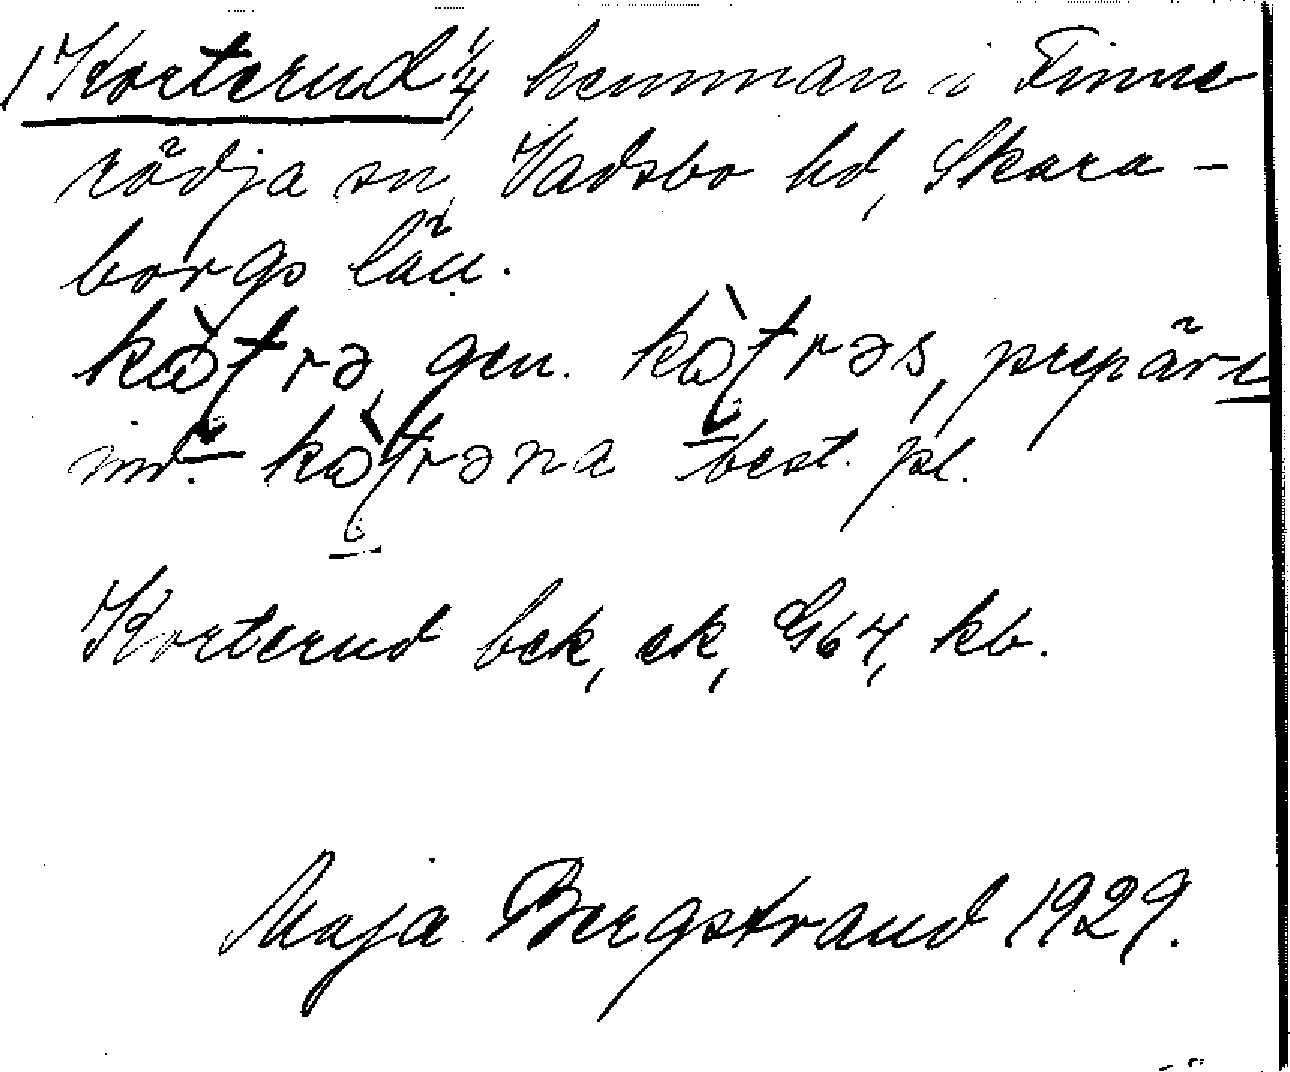 1 Korterud 1/4, hemman i Finne-
rödja sn, Vadsbo hd, Skara-
borgs län.
kòtrə, gen. kòtrəs, prep. är i
kòtrəna best. pl.
Korterud bek, ek, G64, kb.
Maja Bergstrand 1929.